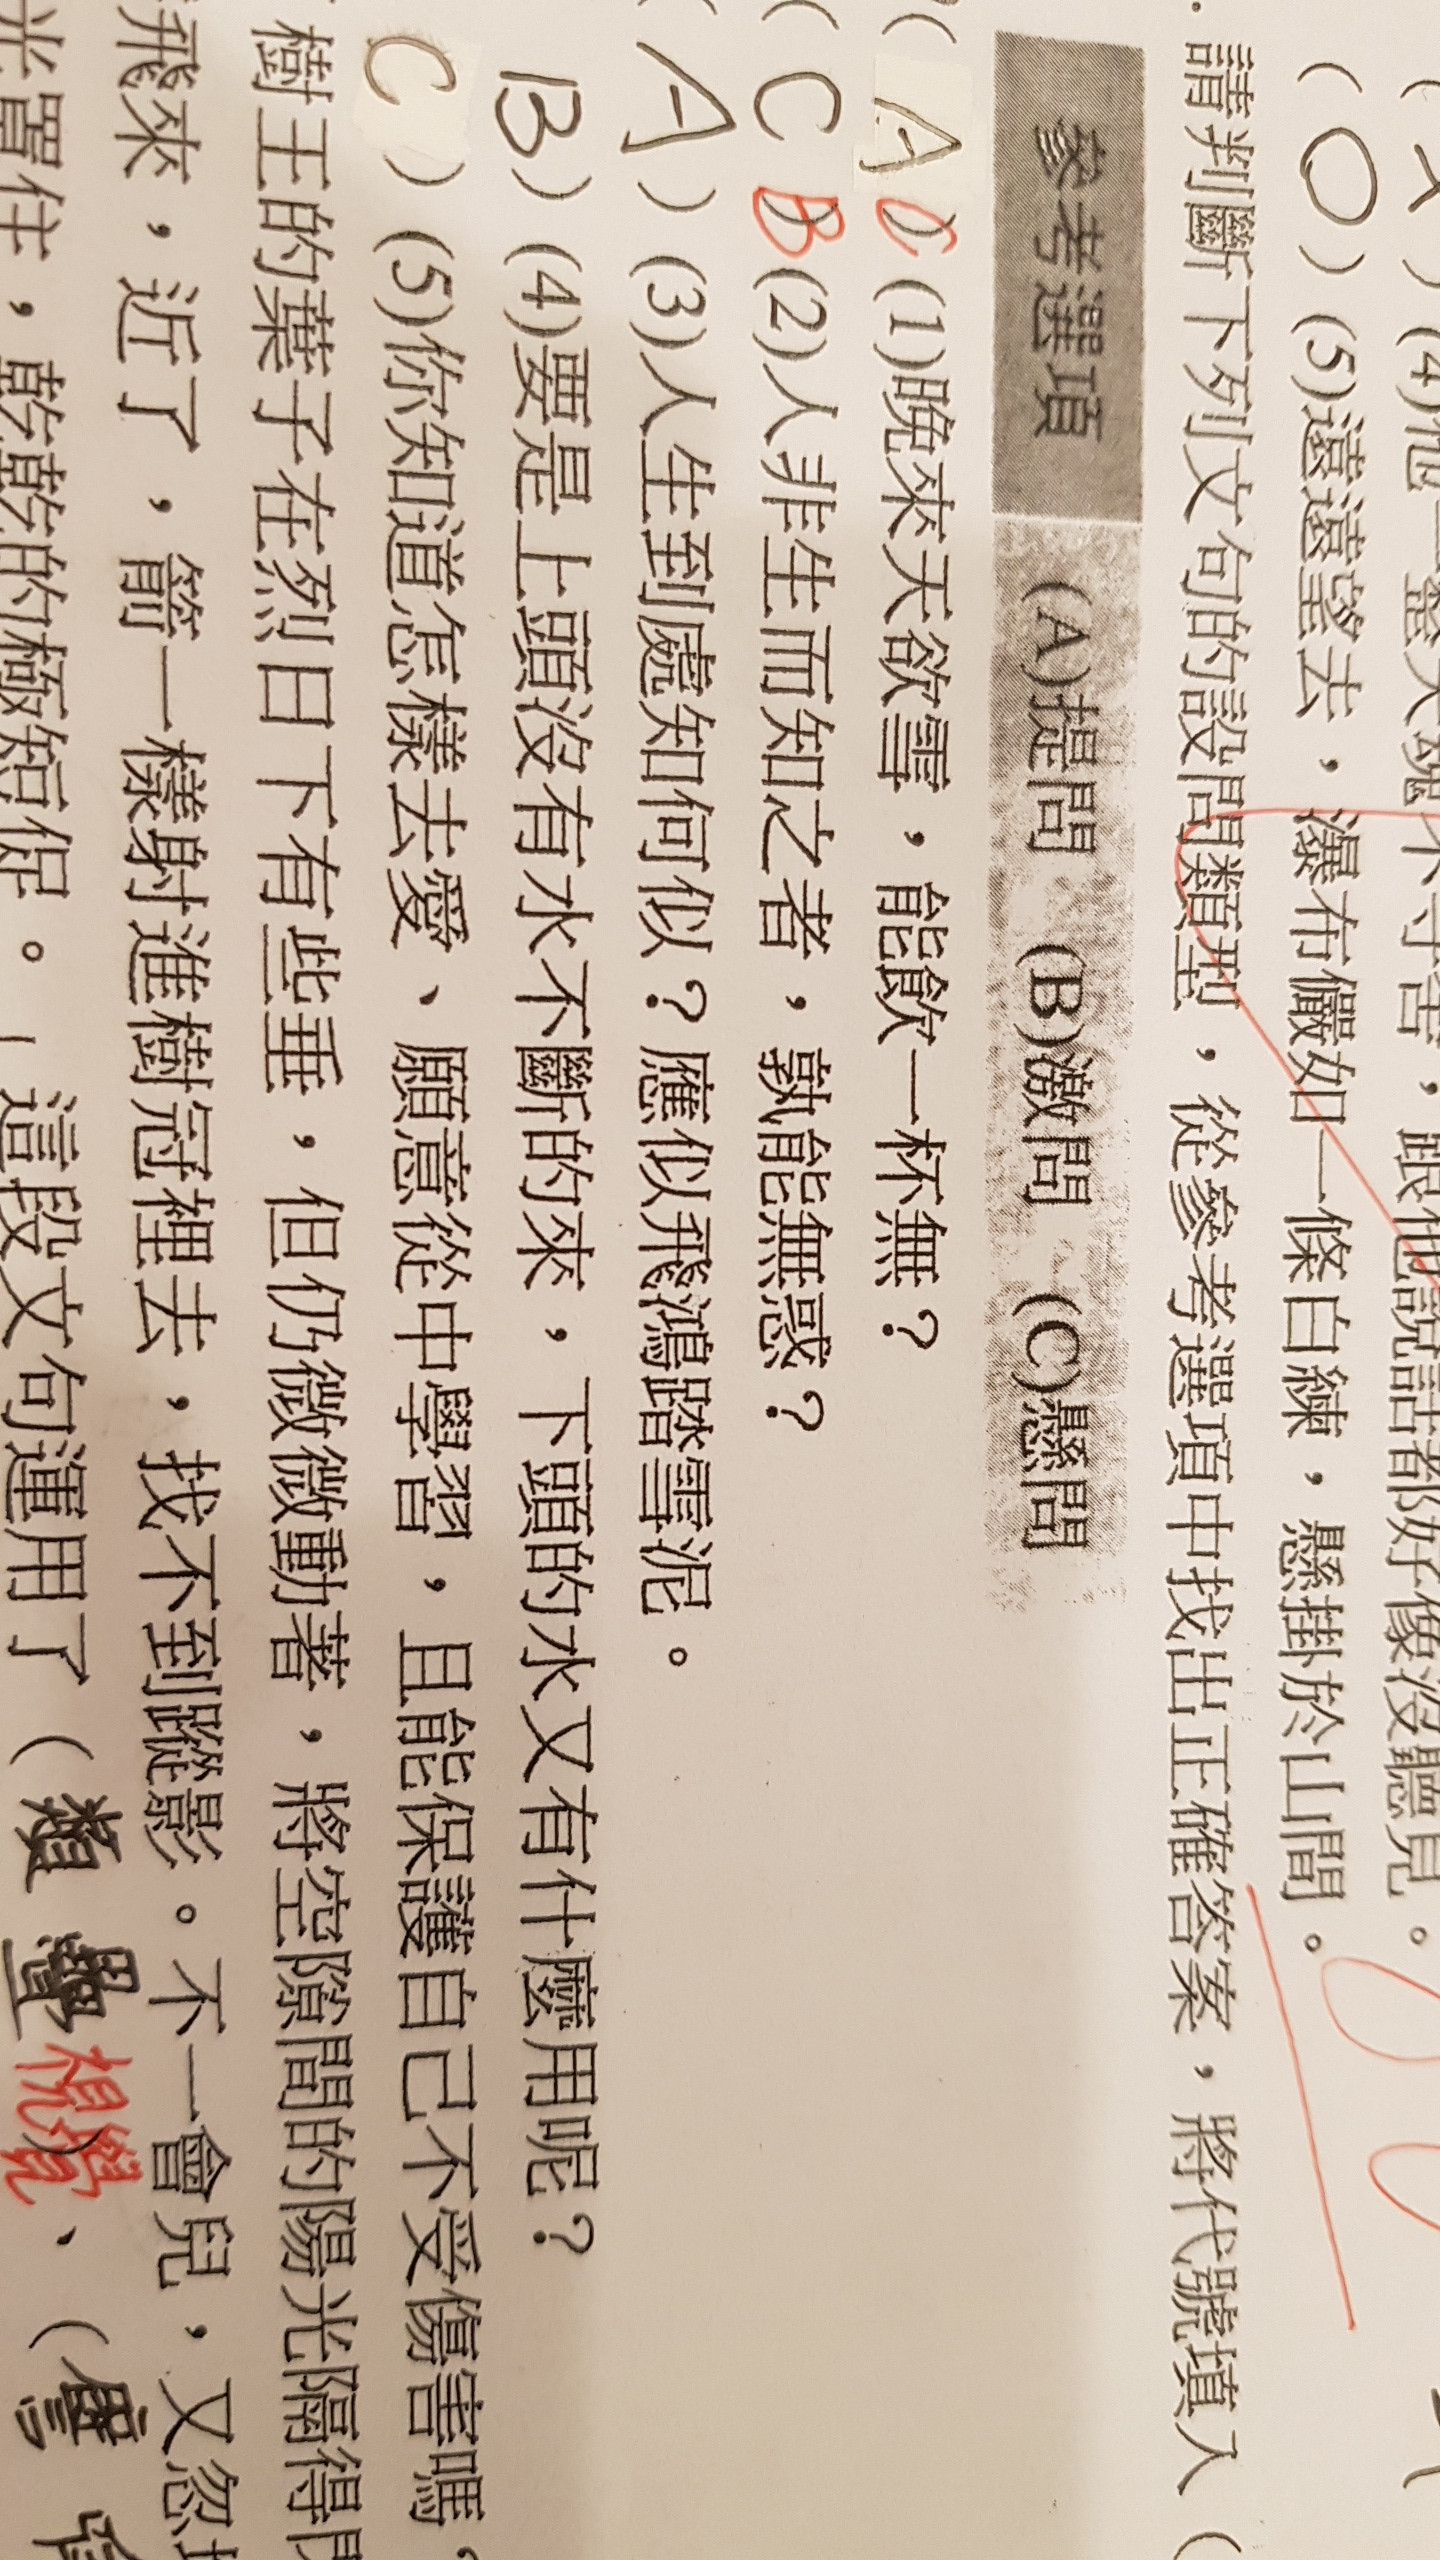 (ㄨ)(4)他一整天魂不守舍，跟他說話都好像沒聽見。
(O)(5)遠遠望去，瀑布儼如一條白練，懸掛於山間。
請判斷下列文句的設問類型，從參考選項中找出正確答案，將代號填入(
參考選項 (A)提問 (B)激問 (C)懸問
(A)C(1)晚來天欲雪，能飲一杯無？
(C)B(2)人非生而知之者，孰能無惑？
(A)(3)人生到處知何似？應似飛鴻踏雪泥。
B)(4)要是上頭沒有水不斷的來，下頭的水又有什麼用呢？
C)(5)你知道怎樣去愛、願意從中學習，且能保護自己不受傷害嗎
樹王的葉子在烈日下有些垂，但仍微微動著，將空隙間的陽光隔得
飛來，近了，箭一樣射進樹冠裡去，找不到蹤影。不一會兒，又忽
光罩住，乾乾的極短促。」這段文句運用了(視覺)、(